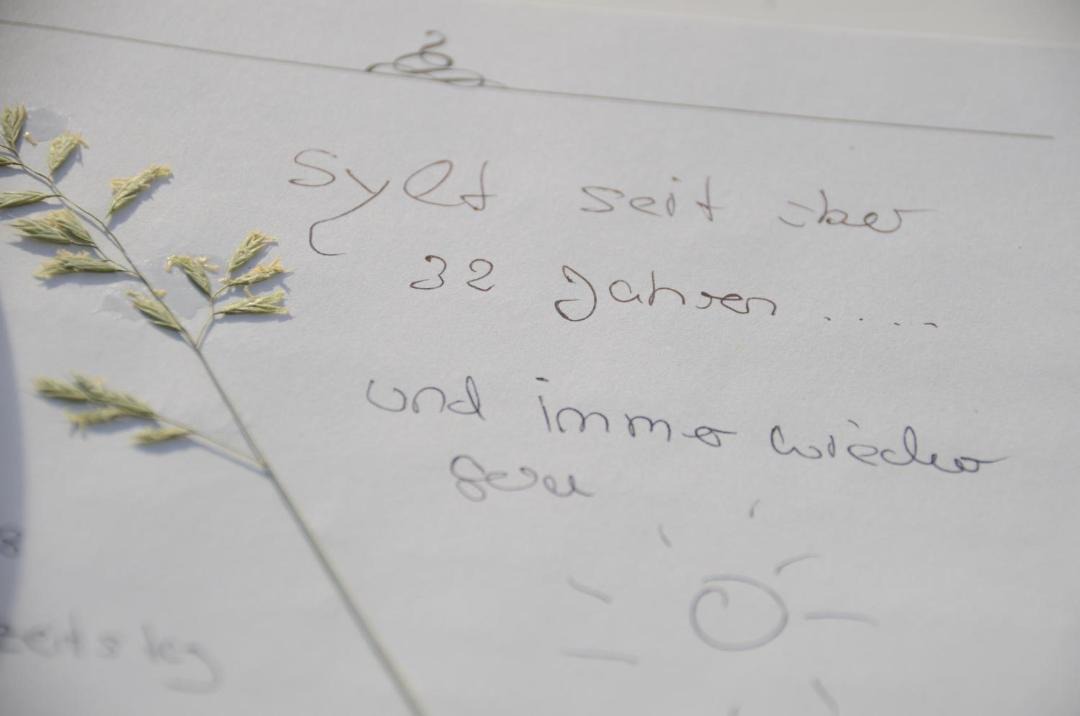 Sylt seit über
32 Jahren .....
und immer wieder
gern